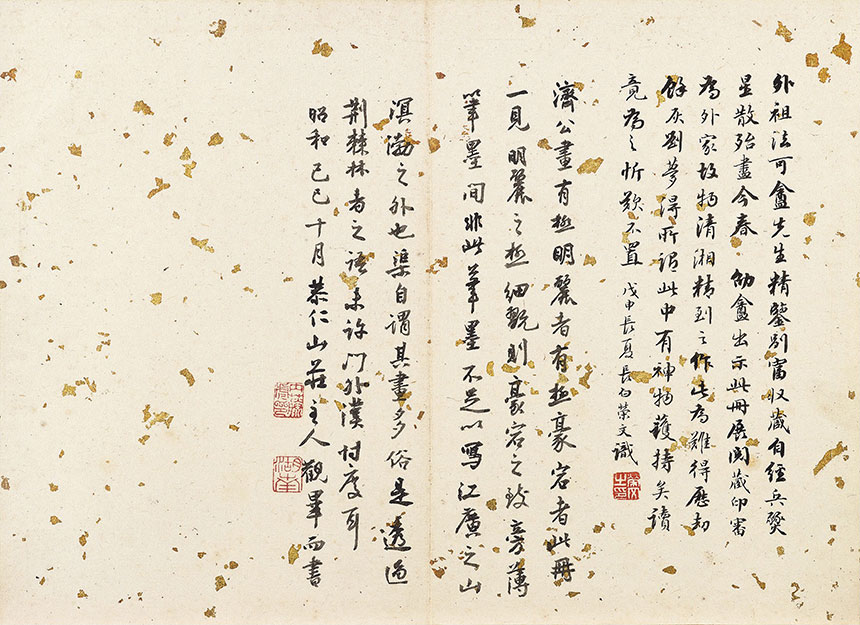 外祖法可盦先生精鑒別富收藏自經兵燹
星散殆盡今春 劬盦出示此冊展閱藏印審
為外家故物清湘精到之作此為難得歷劫
餘灰劉夢得所謂此中有神物護持矣讀
竟為之忻歎不置 戊申長夏長白榮文識
濟公畫有極明麗者有極豪宕者此冊
一見明麗之極細翫則豪宕之致旁薄
筆墨間非此筆墨不足以寫江廣之山
溟渤之外也渠自謂其畫多俗是透過
荊棘林者之語未許門外漢忖度耳
昭和己巳十月 恭仁山莊主人觀畢而書